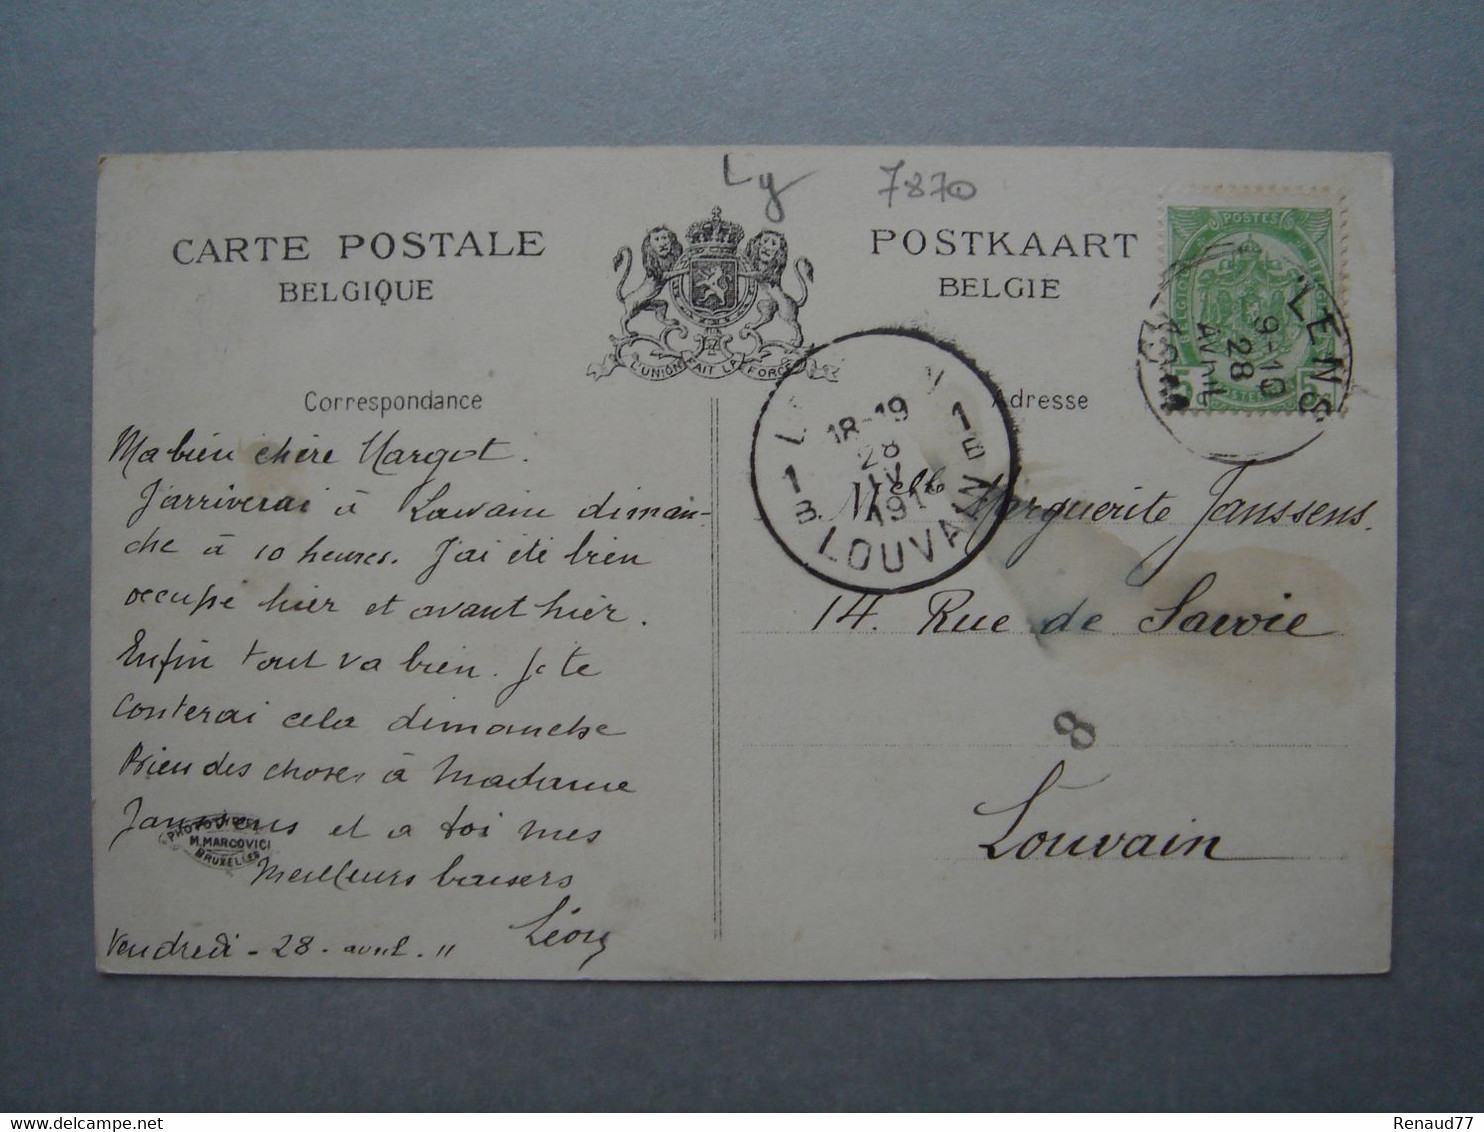 Ly 7870
CARTE POSTALE
BELGIQUE
POSTKAART
BELGIE
L'UNION FAIT LA FORCE
Correspondance
Adresse
POSTES
5c 5c
LENS
9-10
28
Avril
18-19
28
IV
191
1 B
1 B
LOUVAIN
Ma bien chère Margot.
J'arriverai à Louvain diman-
che à 10 heures. J'ai été bien
occupé hier et avant hier.
Enfin tout va bien. Je te
conterai cela dimanche
Bien des choses à Madame
Janssens et a toi mes
meilleurs baisers
Léon
Vendredi - 28 - avril - 11
PHOTOTYPIE
M. MARCOVICI
BRUXELLES
Melle Marguerite Janssens.
14. Rue de Savoie
8
Louvain
Renaud77
delcampe.net